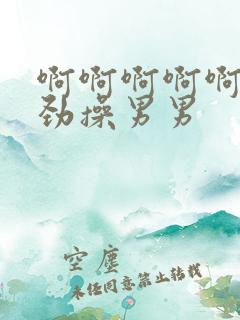 啊啊啊啊啊
劲操男男
空尘
未经同意禁止转载